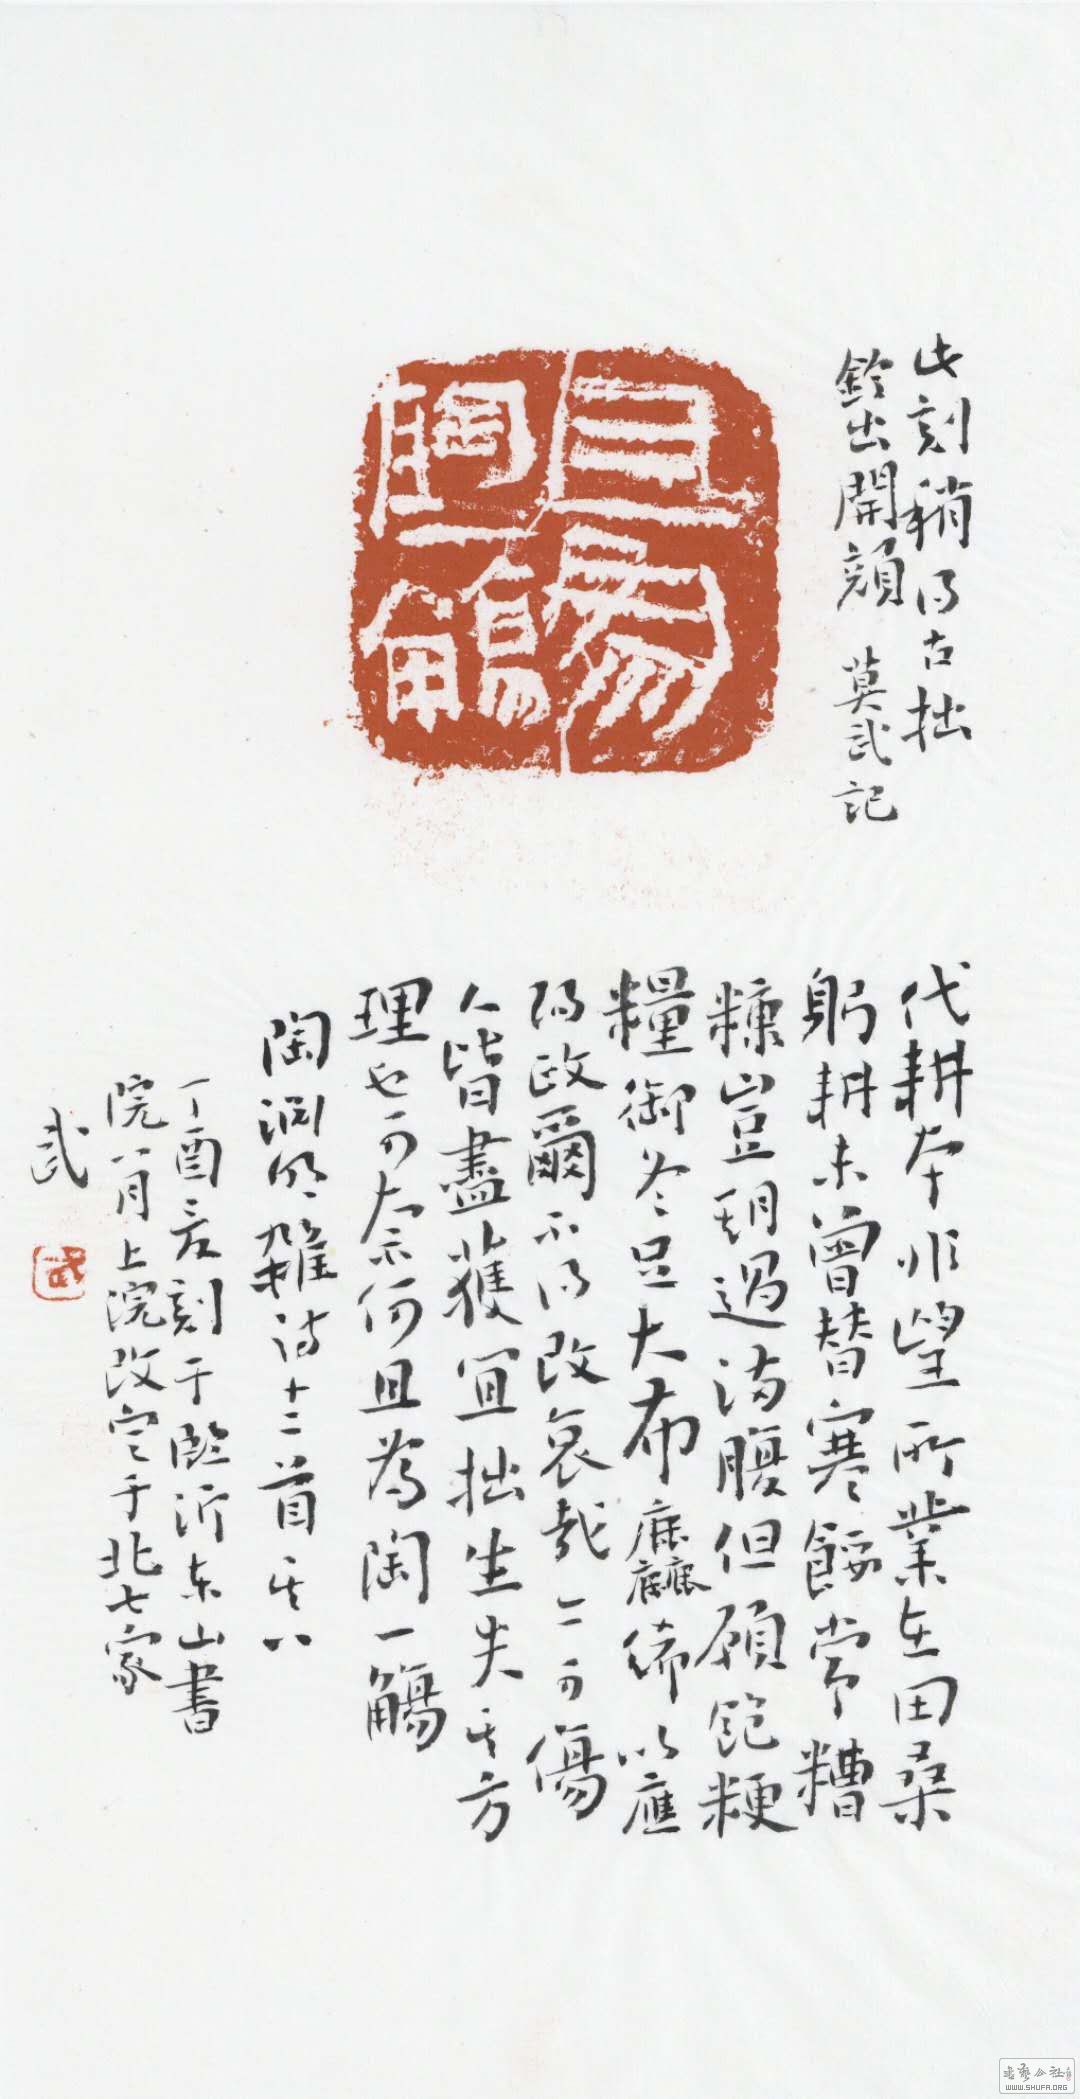 此刻稍得古拙
鈐出開顏 莫武記
且為
陶一觴
代耕本非望所業在田桑
躬耕未曾替寒餒常糟
糠豈期過滿腹但願飽粳
糧御冬足大布麤絺以應
陽政爾不得改哀哉亦可傷
人皆盡獲宜拙生失其方
理也可奈何且為陶一觴
陶淵明雜詩十二首其八
丁酉刻于臨沂東山書
院八月上浣改定于北七家
武
武
WWW.SHUFA.ORG